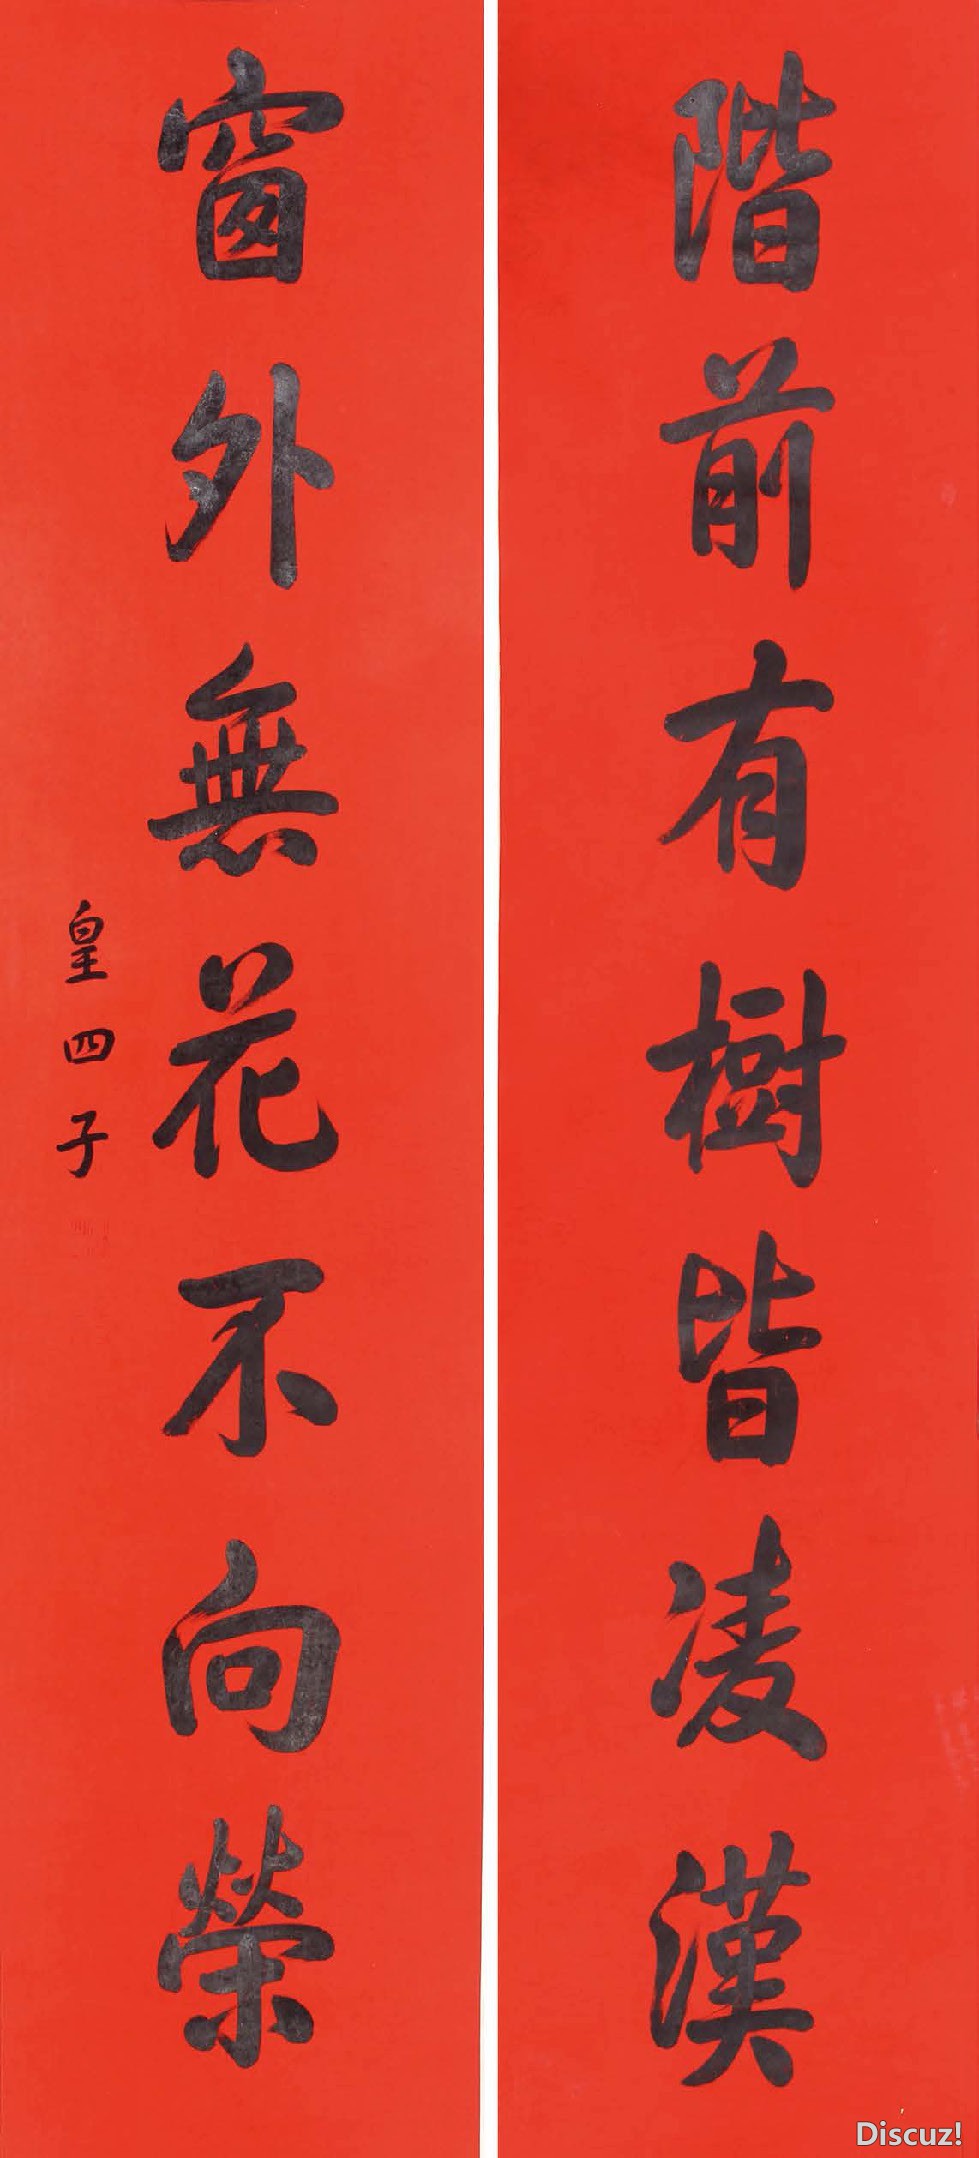 階前有樹皆凌漢
窗外無花不向榮
皇四子
Discuz!